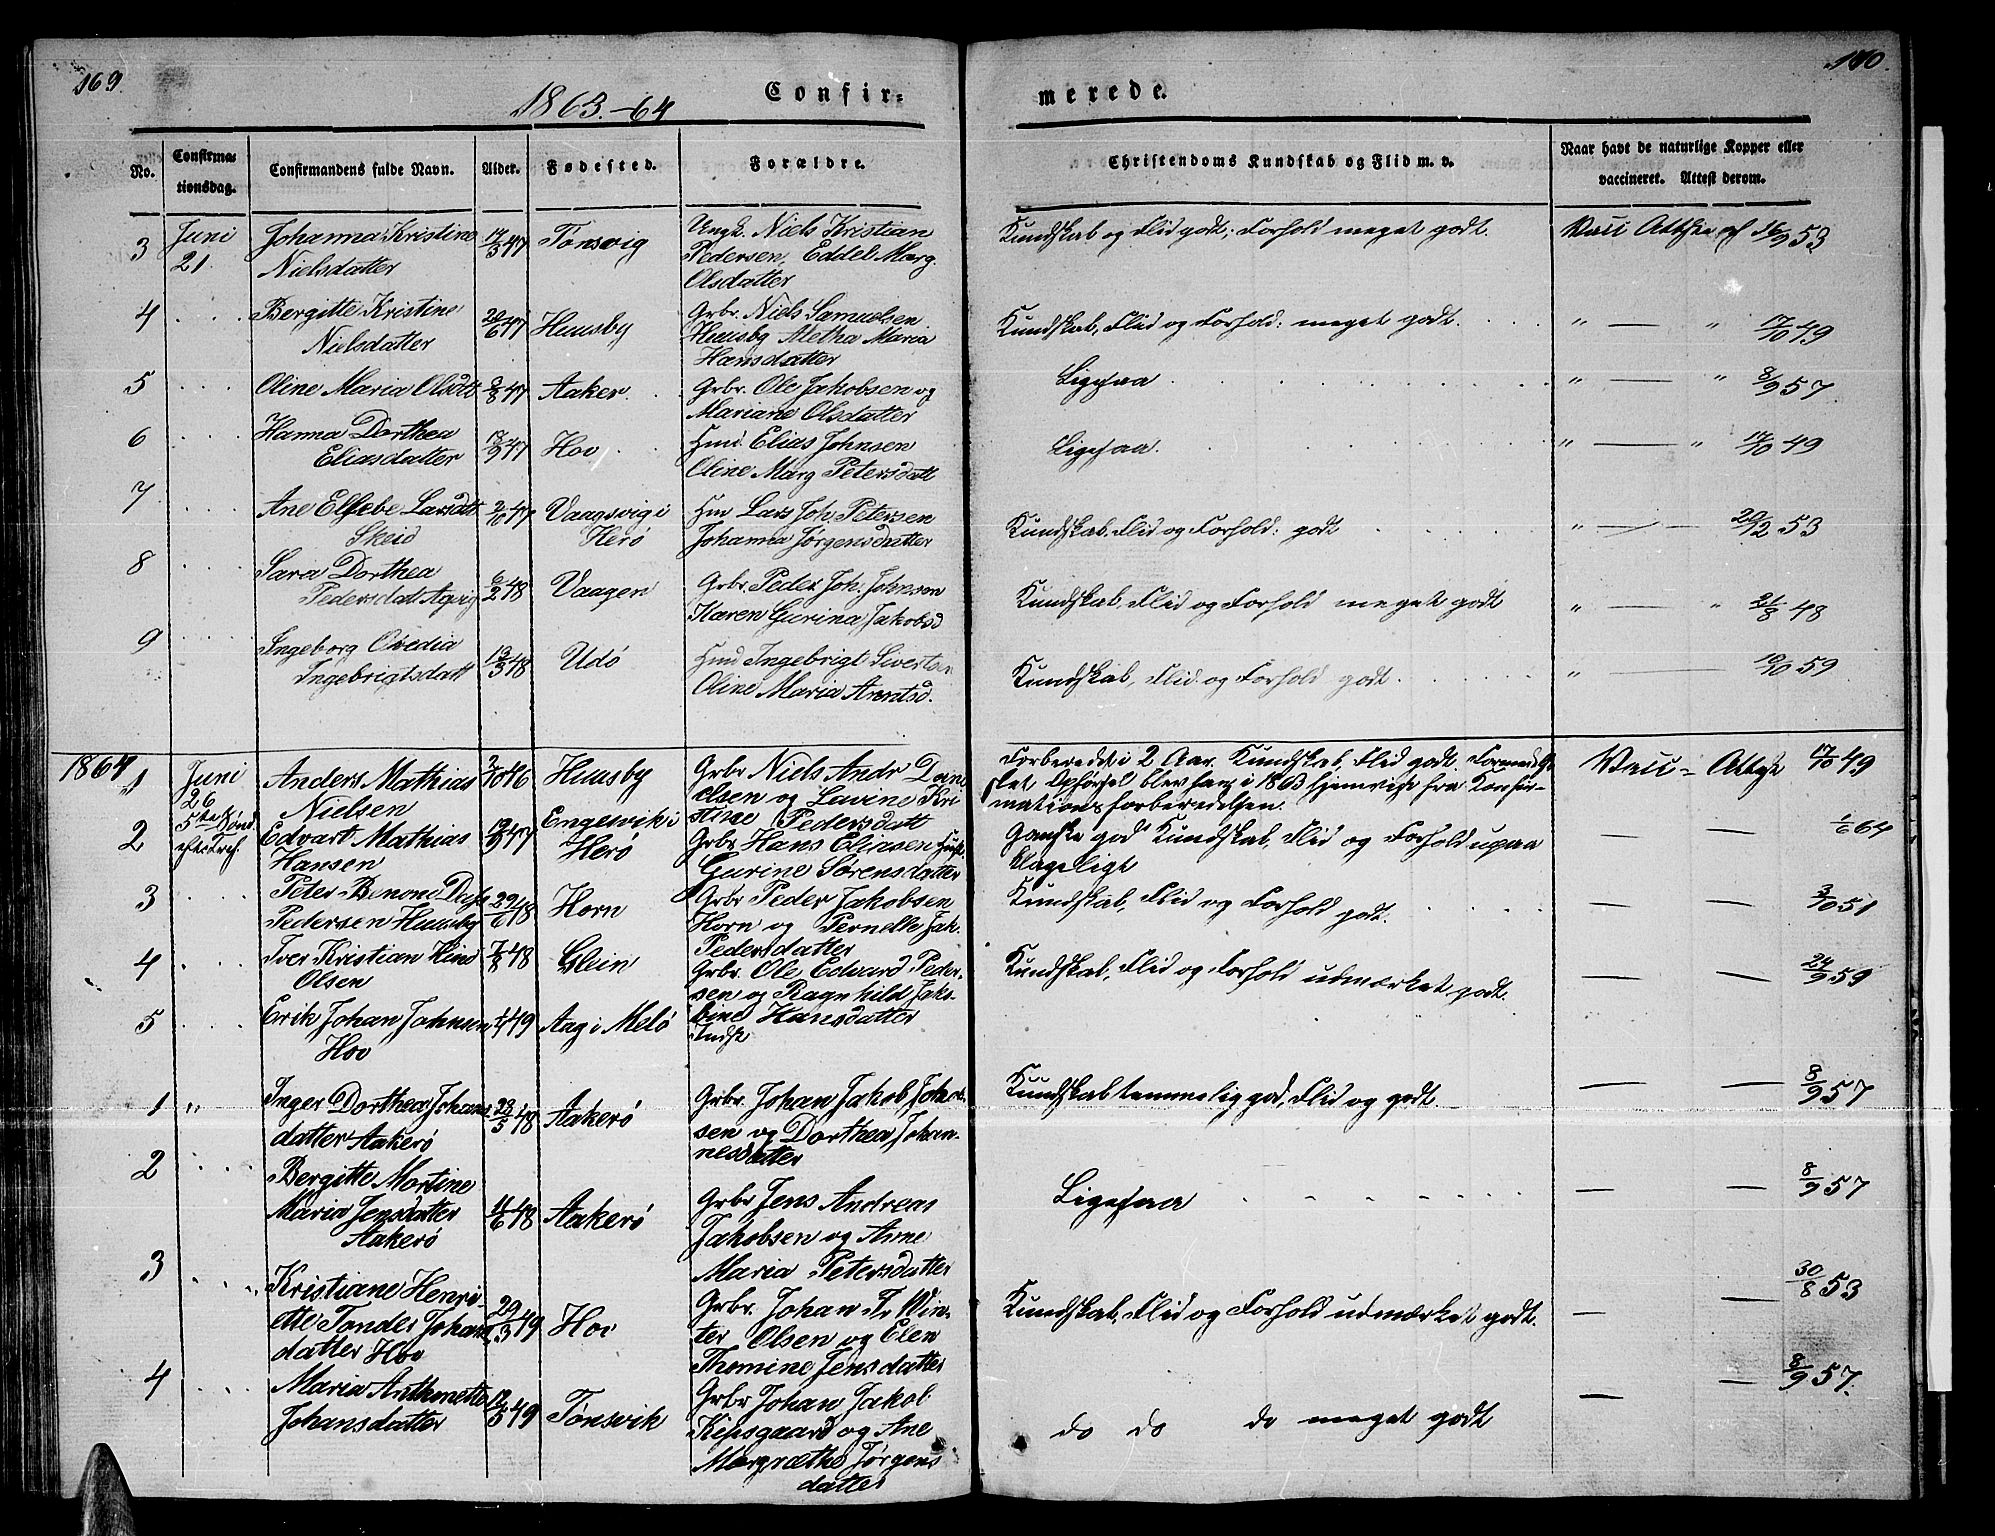 169.
170.
1863.-64
Confir-
merede.
No.
Confirma-
tionsdag.
Confirmandens fulde Navn.
Alder.
Fødested.
Forældre.
Christendoms Kundskab og Flid m. v.
Naar havt de naturlige Kopper eller
vaccineret. Attest derom.
3 Juni 21. Johanna Kristine 17/3 47 Tonsvig Ungk. Niels Kristian Kundskab og Flid godt; Forhold meget godt. Vacc Attest af 16/9 53
Nielsdatter Pedersen, Eddel Marg.
Olsdatter
4 Bergitte Kristine 20/6 47 Huusby Grbr. Niels Samuelsen Kundskab, Flid og Forhold: meget godt. " — " 17/10 49
Nielsdatter Huusby Aletha Maria
Hansdatter
5 Oline Maria Olsdtt 2/8 47 Aaker. Grbr. Ole Jakobsen og Ligesaa " — " 8/9 57
Mariane Olsdatter
6 Hanna Dorthea 18/9 47 Hov Hmd Elias Johnsen Ligesaa. " — " 17/10 49
Eliasdatter Oline Marg Petersdatt
7 Ane Elsebe Larsdt 2/10 47 Vaagsvig i Hm Lars Joh. Petersen Kundskab, Flid og Forhold: godt " — 20/2 53
Skeid Herö Johanna Jørgensdatter
8 Sara Dorthea 6/2 48 Vaagen Grbr. Peder Joh. Johnsen Kundskab, Flid og Forhold meget godt " — " 21/8 48
Pedersdatt Karen Gurina Jakobsd
9 Ingeborg Ovedia 13/3 48 Udö Hmd Ingebrigt Sivertsen Kundskab, Flid og Forhold godt. " — 10/10 59
Ingebrigtsdatt Oline Maria Arntsd.
1864
1 Juni 26 Anders Mathias 3/10 46 Huusby Grbr Niels Andr Dani- Forberedet i 2 Aar. Kundskab, Flid godt. Formedelst Vacc - Attest 17/10 49
Nielsen elsen og Lavine Kri- slet Opførsel blev han i 1863 hjemvist fra Konfir-
5te Sønd. stine Pedersdatt mationsforberedelsen.
2 eft. Tref. Edvart Mathias 19/9 47 Engesvik i Grbr. Hans Eliasen Ganske god Kundskab, Flid og Forhold upaa — — 1/6 64
Hansen Herö Gurine Sørensdatter klageligt
3 Peter Benoni 29/6 48 Horn Grbr Peder Jakobsen Kundskab, Flid og Forhold godt. — — 3/10 51
Pedersen Huusby Horn og Pernelle Jak.
Pedersdatter
4 Iver Kristian Hind 7/8 48 Glein Grbr. Ole Edvard Peder- Kundskab, Flid og Forhold udmærket godt. — — 24/9 59
Olsen sen og Ragnhild Jako-
5 Erik Johan Johnsen 49 Aag i Melö bine Hansdatter
Hov Indst
1 " Inger Dorthea Johans 23/3 48 Aakerö Grbr. Johan Jakob Johan- Kundskab temmelig god, Flid og godt. — — 8/9 57
datter Aakerö sen og Dorthea Johan-
nesdatter
2 Bergitte Martine 11/6 48 Aakerö Grbr Jens Andreas Ligesaa — — 8/9 57
Maria Jensdatter Jakobsen og Anne
Aakerö Maria Petersdatter
3 Kristiane Henri- 29/3 49 Hov Grbr. Johan Fr Win- Kundskab, Flid og Forhold udmærket godt. — — 30/8 53
ette Tander Johans ter Olsen og Elen
datter Hov Thomine Jensdatter
4 Maria Anthonette 12/5 49 Tönsvik Grbr Johan Jakob do do do meget godt — — 8/9 57.
Johansdatter Kipsgaard og Ane
Margrethe Jørgens
datter